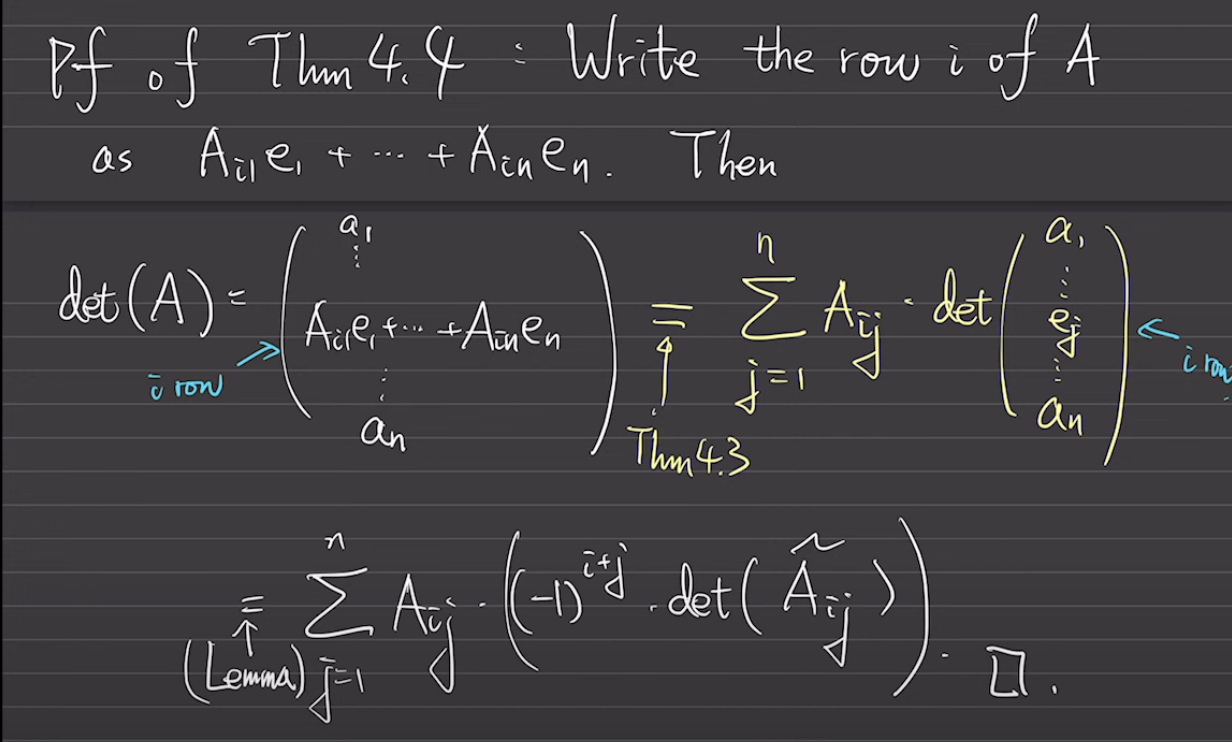 Pf of Thm 4.4 : Write the row i of A
as A_{i1}e_1 + ⋯ + A_{in}e_n. Then
det(A) = ( a_1 ⋮ A_{i1}e_1 + ⋯ + A_{in}e_n ⋮ a_n ) = \sum_{j=1}^{n} A_{ij} · det ( a_1 ⋮ e_j ⋮ a_n )
i row → ← i row
↑ Thm 4.3
= \sum_{j=1}^{n} A_{ij} · ( (-1)^{i+j} · det( \tilde{A}_{ij} ) ) . □ .
↑ (Lemma)